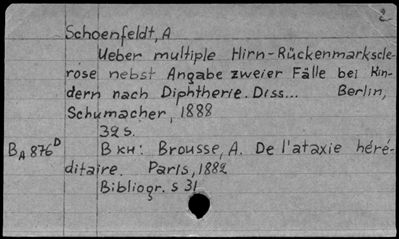 2
Schoenfeldt, A
Ueber multiple Hirn-Rückenmarkscle-
rose nebst Angabe zweier Fälle bei Kin-
dern nach Diphtherie. Diss... Berlin,
Schumacher, 1888
32 s.
BA 876D Вкн: Brousse, A. De l'ataxie héré-
ditaire. Paris, 1882
Bibliogr. s 31